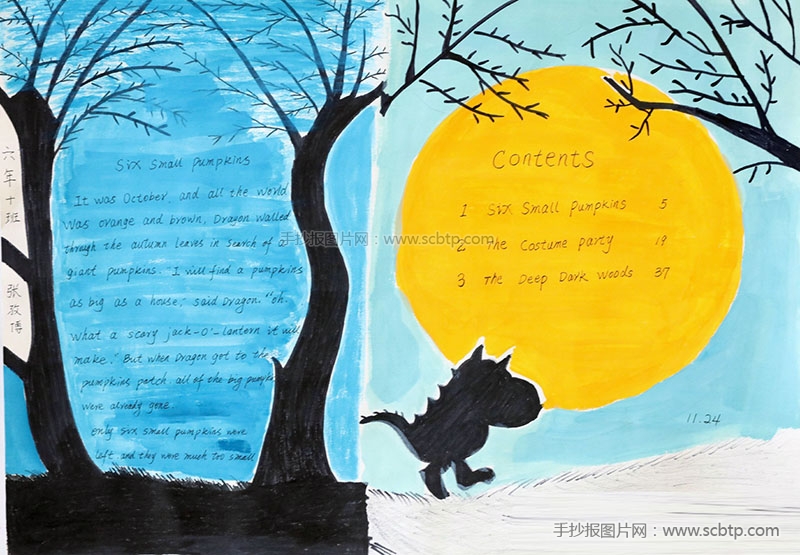 六年十班
张
Six Small Pumpkins
It was October, and all the world
was orange and brown, Dragon walked
through the autumn leaves in search of a
giant pumpkins. "I will find a pumpkins
as big as a house," said Dragon. "oh.
what a scary jack-O'-lantern it will
make." But when Dragon got to the
pumpkins patch all of the big pumpki
were already gone.
only six small pumpkins were
left and they were much too small
Contents
1 Six Small Pumpkins 5
2 The Costume party 19
3 The Deep Dark woods 37
11.24
手抄报图片网：www.scbtp.com
手抄报图片网：www.scbtp.com